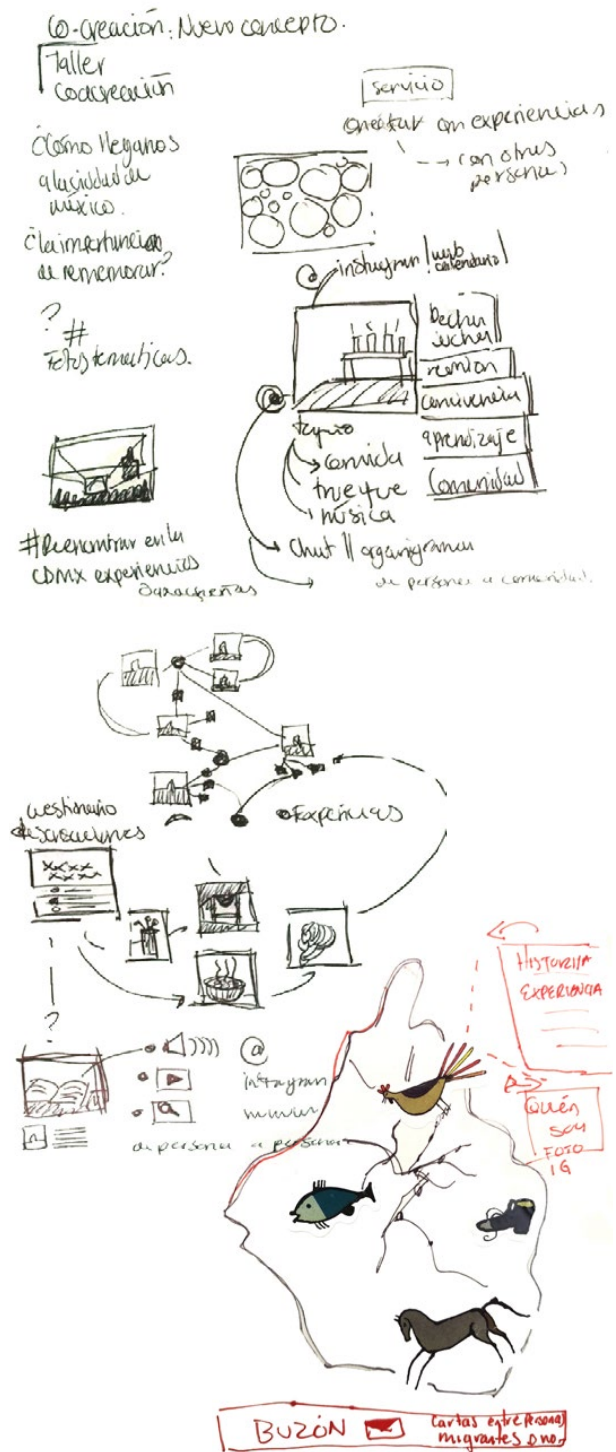 Co-creación: Nuevo concepto.
Taller
Cocreación
¿Cómo llegamos
a la ciudad de
méxico.
¿la importancia
de rememorar?
?
#
Fotos tematicas.
#Reencontrar en la
CDMX experiencias
Oaxaqueñas
servicio
conectar con experiencias
con otras
personas
@
instagram
web
calendario
reunion
convivencia
aprendizaje
Comunidad
comida
trueque
música
Chat || organigrama
de persona a comunidad.
Experiencias
Cuestionario
?
@
instagram
de persona a persona
HISTORIA
EXPERIENCIA
Quién
soy
FOTO
IG
BUZÓN
Cartas entre Personas
migrantes o no-